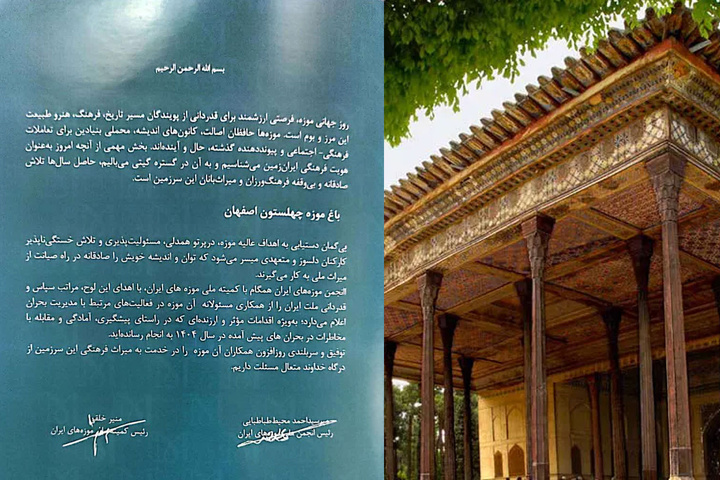 بسم الله الرحمن الرحیم
روز جهانی موزه، فرصتی ارزشمند برای قدردانی از پویندگان مسیر تاریخ، فرهنگ، هنر و طبیعت
این مرز و بوم است. موزه‌ها حافظان اصالت، کانون‌های اندیشه، محملی بنیادین برای تعاملات
فرهنگی - اجتماعی و پیونددهنده گذشته، حال و آینده‌اند. بخش مهمی از آنچه امروز به‌عنوان
هویت فرهنگی ایران‌زمین می‌شناسیم و به آن در گستره گیتی می‌بالیم، حاصل سال‌ها تلاش
صادقانه و بی‌وقفه فرهنگ‌ورزان و میراث‌بانان این سرزمین است.
باغ موزه چهلستون اصفهان
بی‌گمان دستیابی به اهداف عالیه موزه، درپرتو همدلی، مسئولیت‌پذیری و تلاش خستگی‌ناپذیر
کارکنان دلسوز و متعهدی میسر می‌شود که توان و اندیشه خویش را صادقانه در راه صیانت از
میراث ملی به کار می‌گیرند.
انجمن موزه‌های ایران همگام با کمیته ملی موزه های ایران، با اهدای این لوح، مراتب سپاس و
قدردانی ملت ایران را از همکاری مسئولانه آن موزه در فعالیت‌های مرتبط با مدیریت بحران
اعلام می‌دارد؛ به‌ویژه اقدامات مؤثر و ارزنده‌ای که در راستای پیشگیری، آمادگی و مقابله با
مخاطرات در بحران های پیش آمده در سال ۱۴۰۴ به انجام رسانده‌اید.
توفیق و سربلندی روزافزون همکاران آن موزه را در خدمت به میراث فرهنگی این سرزمین از
درگاه خداوند متعال مسئلت داریم.
سیداحمد محیط‌طباطبایی
رئیس انجمن موزه‌های ایران
منیر خلقی
رئیس کمیته موزه‌های ایران